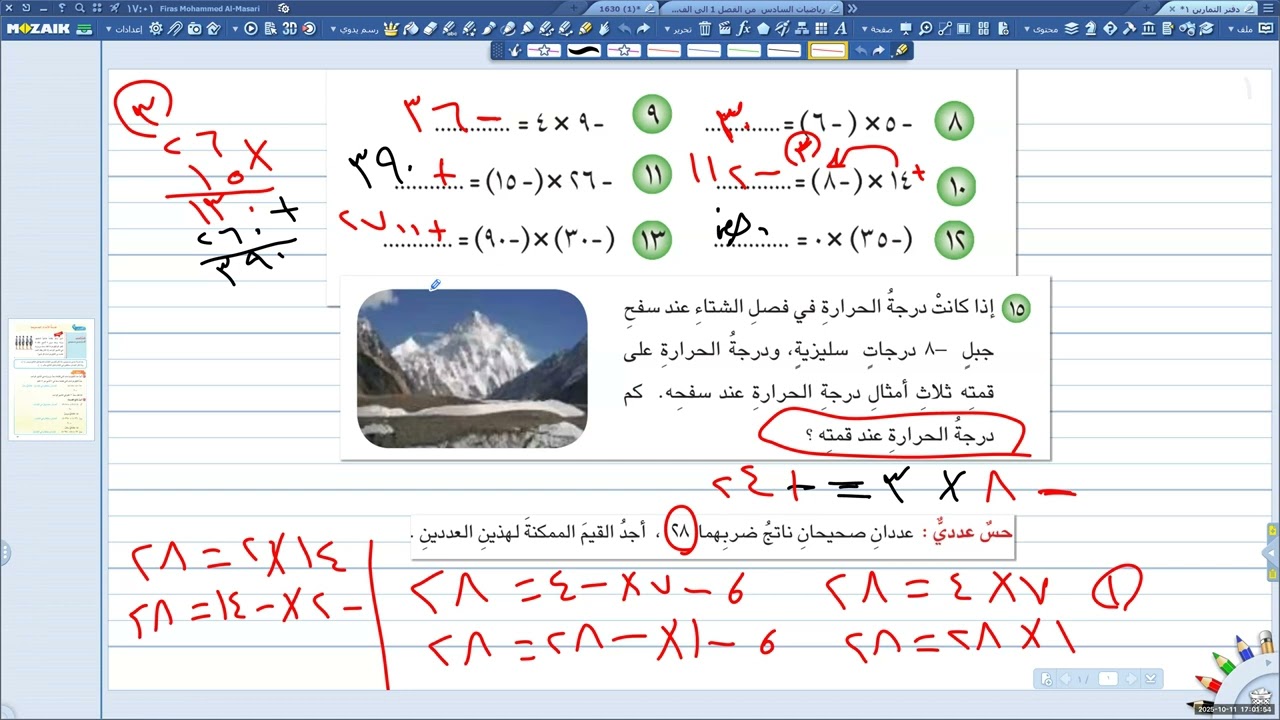 ١٧:٠١ Firas Mohammed Al-Masari
رياضيات السادس- من الفصل 1 الى الف...
1630 (1)*
دفتر التمارين ١*
MOZAIK
إعدادات
رسم يدوي
تحرير
صفحة
محتوى
ملف
٨ -٥ × (-٦) = ٣٠
٩ -٩ × ٤ = -٣٦
١٠ +١٤ × (-٨) = -١١٢
٣
١١ -٢٦ × (-١٥) = +٣٩٠
١٢ (-٣٥) × ٠ =
١٣ (-٣٠) × (-٩٠) = +٢٧٠٠
٣
٢٦ ×
١٥
١٣٠ +
٢٦٠
٣٩٠
١٥ إذا كانتْ درجةُ الحرارةِ في فصلِ الشتاءِ عند سفحِ
جبلٍ -٨ درجاتٍ سليزيةٍ، ودرجةُ الحرارةِ على
قمتِه ثلاثِ أمثالِ درجةِ الحرارةِ عند سفحِه. كم
درجةُ الحرارةِ عند قمتِه ؟
- ٨ × ٣ = + ٢٤
حسٌ عدديٌّ : عددانِ صحيحانِ ناتجُ ضربِهما ٢٨ ، أجدُ القيمَ الممكنةَ لهذينِ العددينِ .
١ ٧ × ٤ = ٢٨ ، -٧ × -٤ = ٢٨
١ × ٢٨ = ٢٨ ، -١ × -٢٨ = ٢٨
١٤ × ٢ = ٢٨
-٢ × -١٤ = ٢٨
١ / ١
2025-10-11 17:01:54